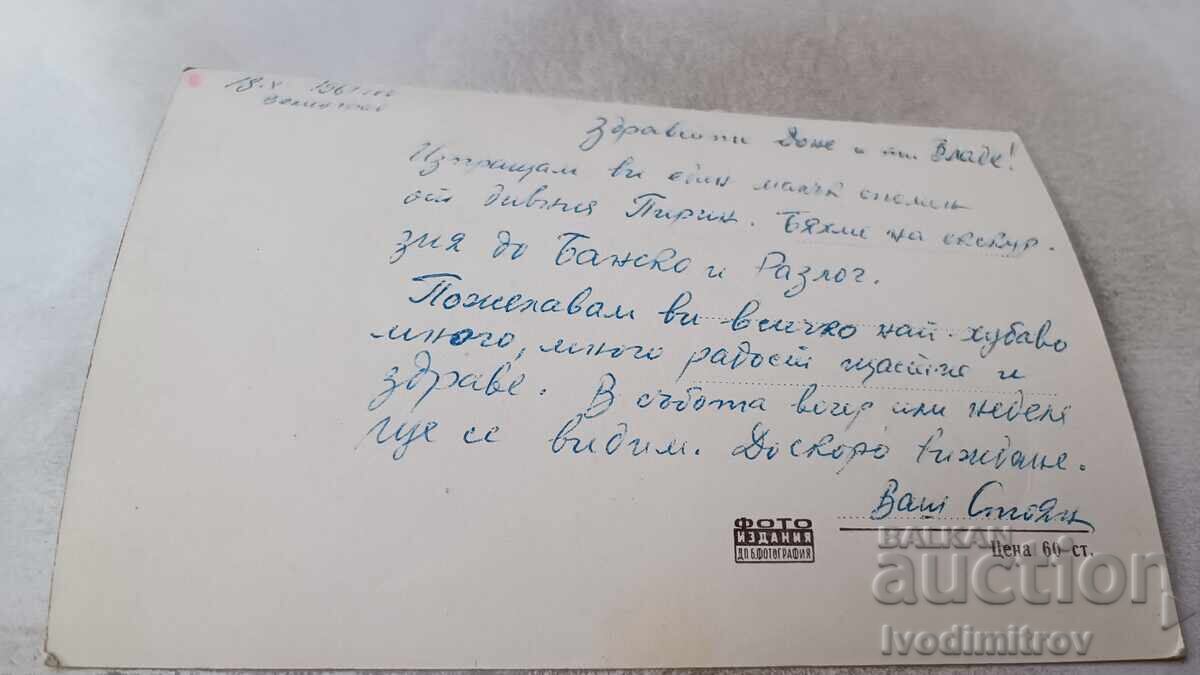 18.X 1961
Здравейте Доне и Владе!
Изпращам ви един малък спомен
от дивния Пирин. Бяхме на екскур-
зия до Банско и Разлог.
Пожелавам ви всичко най-хубаво
много, много радост щастие и
здраве. В събота вечер или неделя
ще се видим. Доскоро виждане.
Ваш Стоян
ФОТО
ИЗДАНИЯ
ДП Б.ФОТОГРАФИЯ
Цена 60 ст.
BALKAN
auction
Ivodimitrov